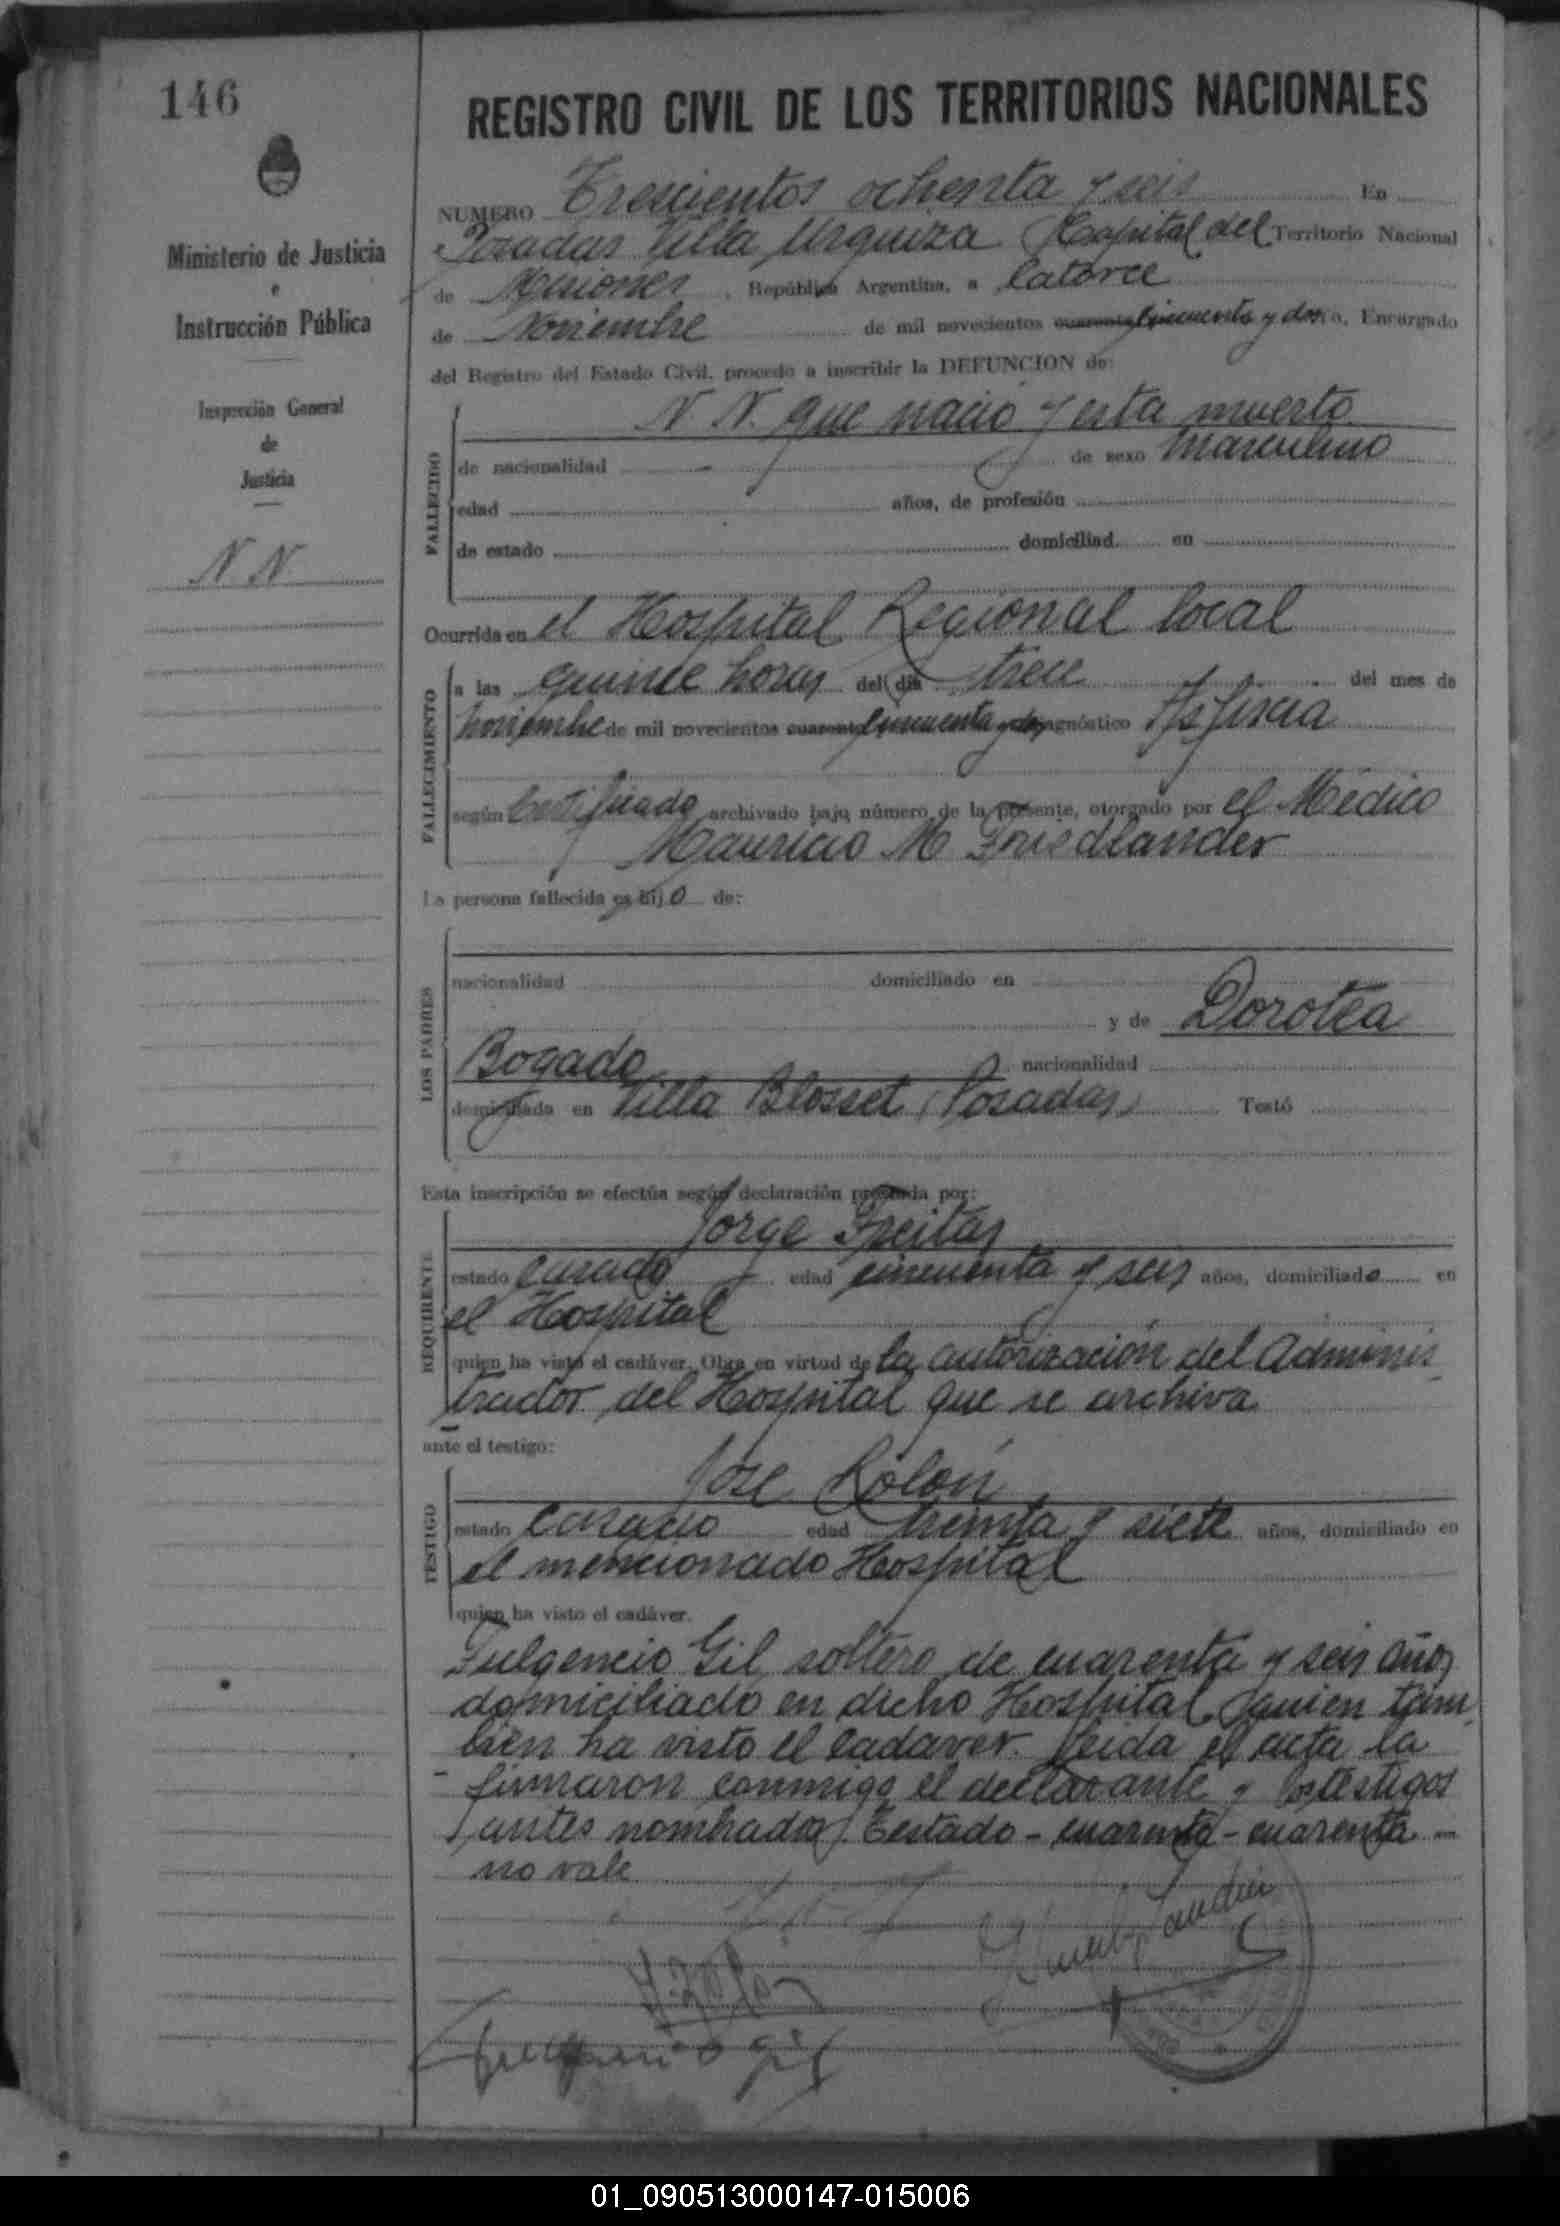 146
REGISTRO CIVIL DE LOS TERRITORIOS NACIONALES
Ministerio de Justicia
e
Instrucción Pública
Inspección General
de
Justicia
N N
NUMERO Trescientos ochenta y seis En
Posadas Villa Urquiza Hospital del Territorio Nacional
de Misiones, República Argentina, a Catorce
de Noviembre de mil novecientos cuarenta cincuenta y dos yo, Encargado
del Registro del Estado Civil, procedo a inscribir la DEFUNCION de:
FALLECIDO
N. N. que nació y esta muerto
de nacionalidad - de sexo masculino
edad años, de profesión
de estado domiciliad en
Ocurrida en el Hospital Regional local
FALLECIMIENTO
a las quince horas del día trece del mes de
noviembre de mil novecientos cuarenta cincuenta y dos diagnóstico Asfixia
según Certificado archivado bajo número de la presente, otorgado por el Médico
Mauricio M Friedlander
La persona fallecida es hijo de:
LOS PADRES
nacionalidad domiciliado en
y de Dorotea
Bogado nacionalidad
domiciliada en Villa Blosset (Posadas) Testó
Esta inscripción se efectúa según declaración prestada por:
REQUIRENTE
Jorge Freitas
estado casado edad cincuenta y seis años, domiciliado en
el Hospital
quien ha visto el cadáver. Obra en virtud de la autorización del Adminis
trador del Hospital que se archiva
ante el testigo:
TESTIGO
José Rolón
estado casado edad treinta y siete años, domiciliado en
el mencionado Hospital
quien ha visto el cadáver.
Fulgencio Gil, soltero de cuarenta y seis años
domiciliado en dicho Hospital, quien tam
bien ha visto el cadaver. Leida el acta la
firmaron conmigo el declarante y los testigos
antes nombrados. Testado - cuarenta - cuarenta -
no vale
Fulgencio Gil
01_090513000147-015006